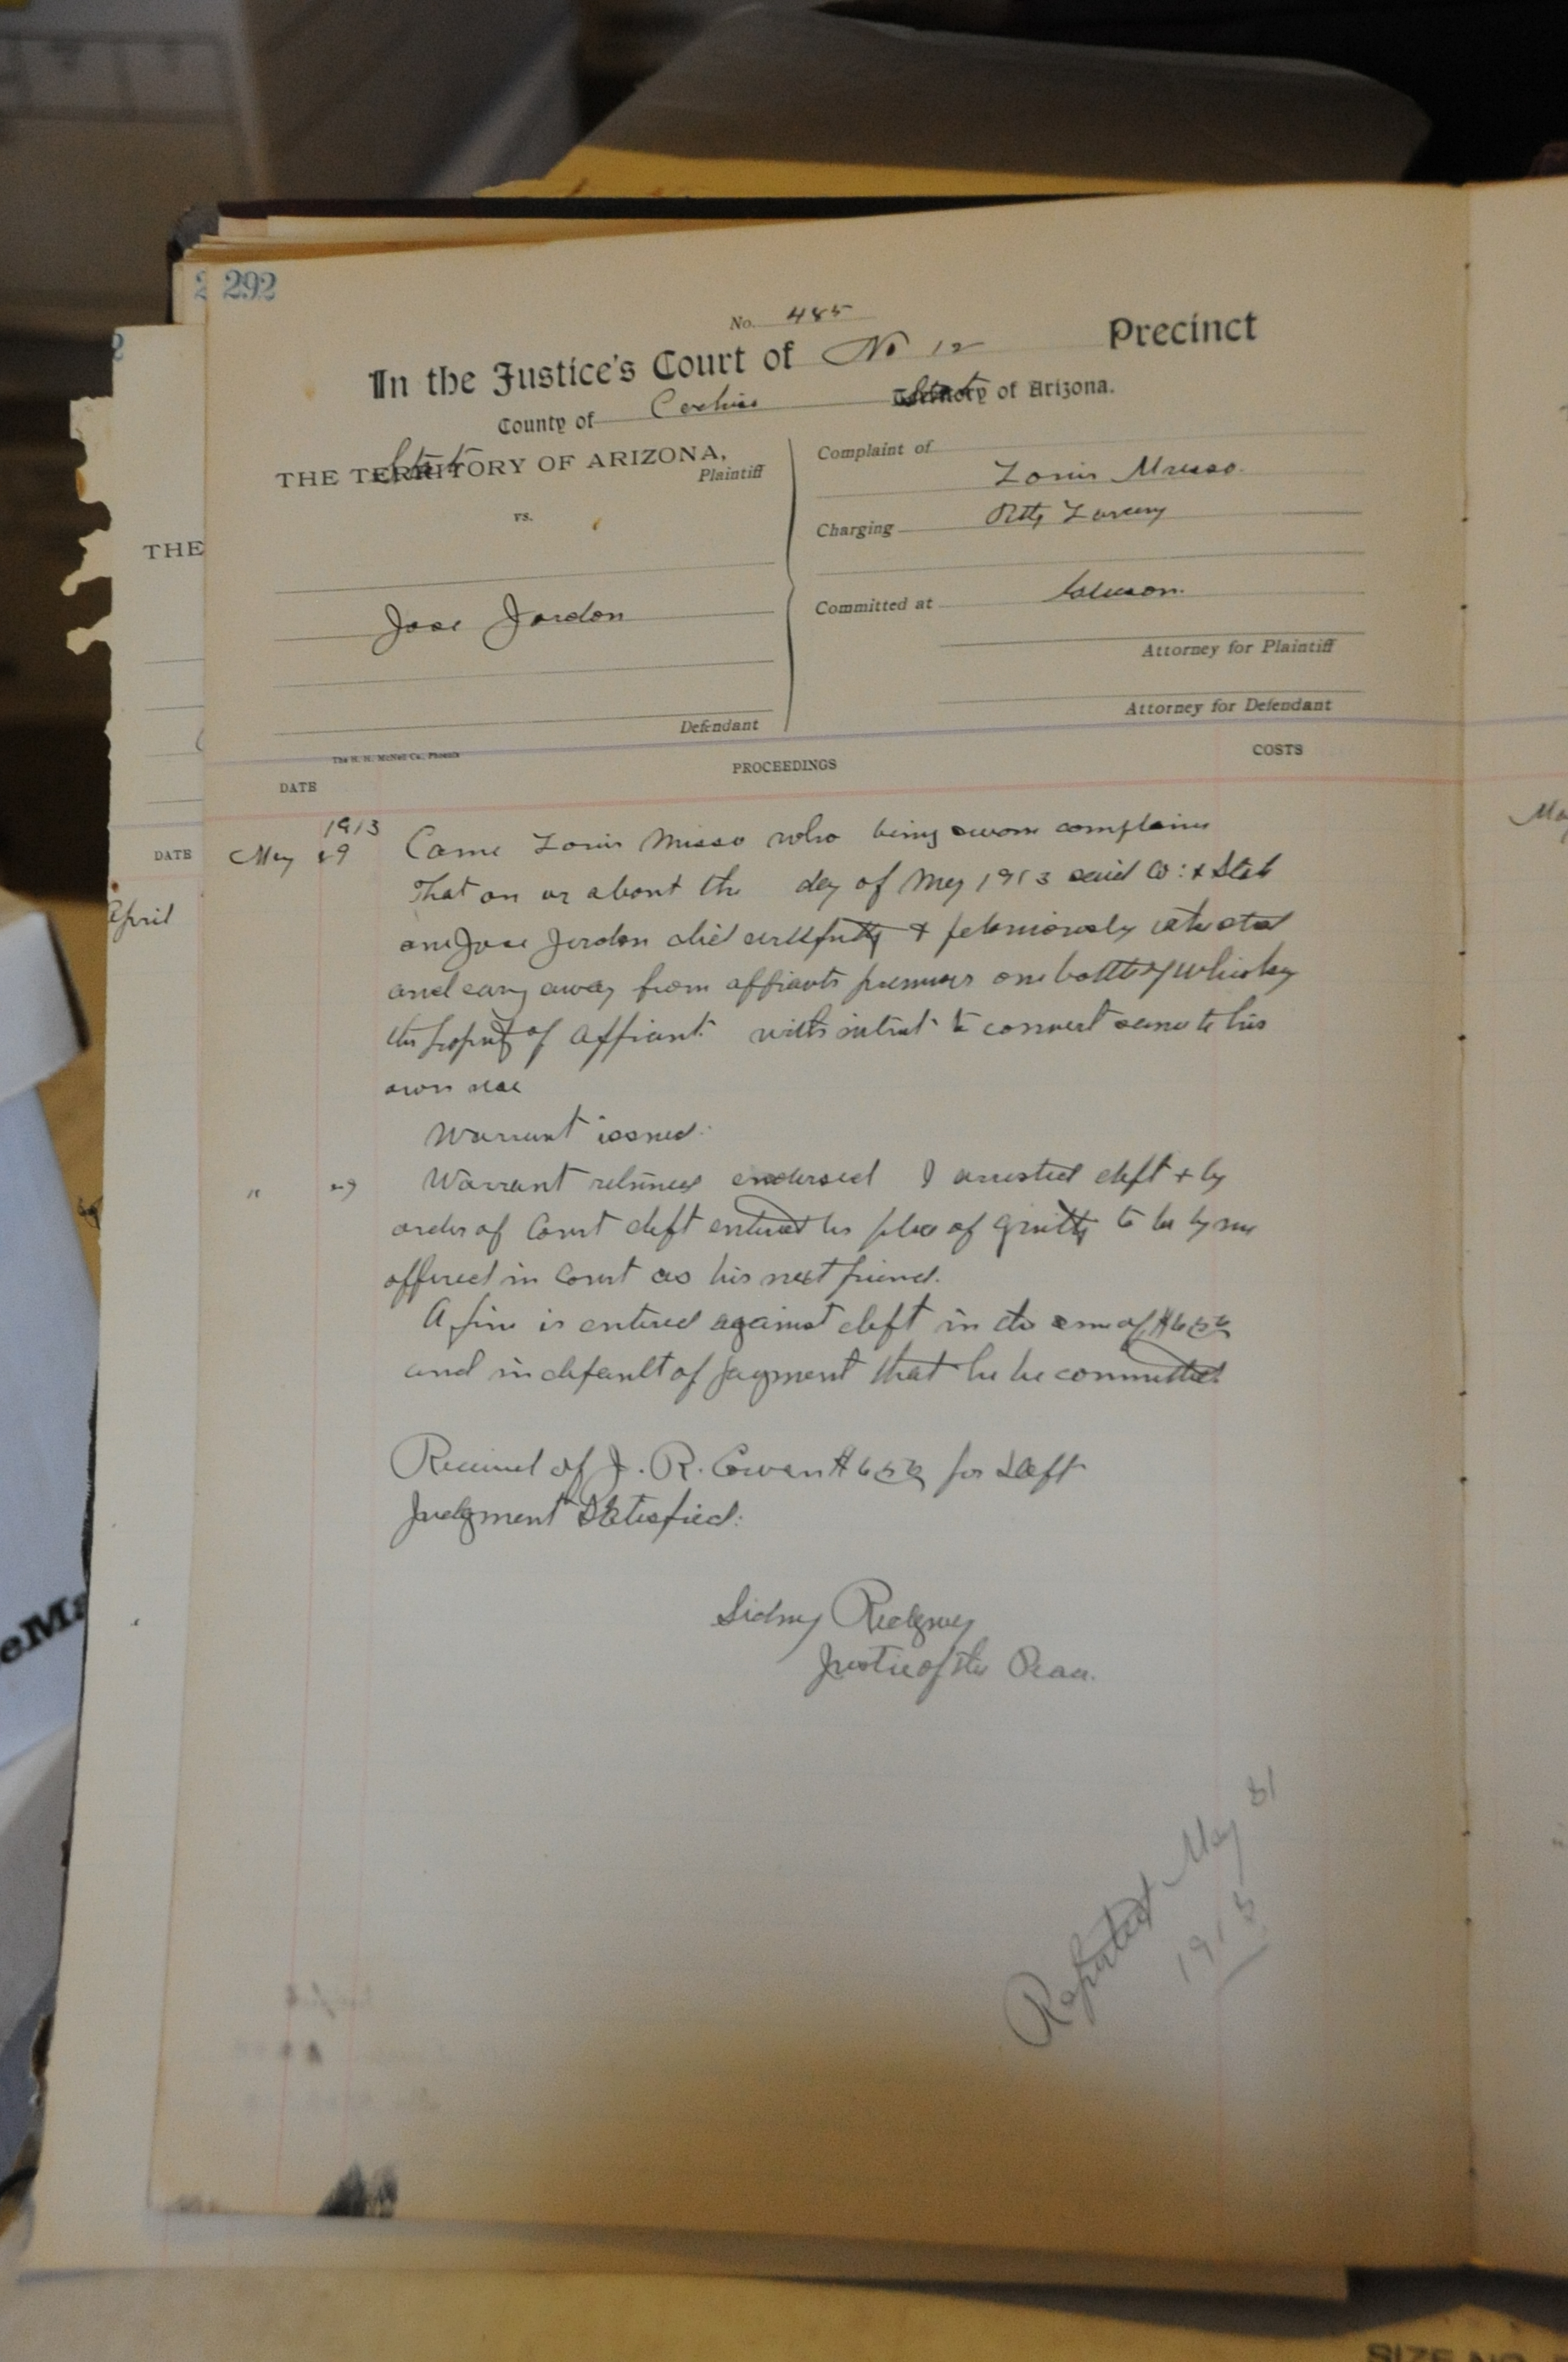 292
No. 485
In the Justice's Court of No 12 Precinct
County of Cochise State of Arizona.
State
THE TERRITORY OF ARIZONA,
Plaintiff
vs.
Jose Jordon
Defendant
Complaint of
Louis Musso
Charging Petty Larceny
Committed at Johnson.
Attorney for Plaintiff
Attorney for Defendant
The H. H. McNeil Co., Phoenix
DATE
PROCEEDINGS
COSTS
1913
May 29 Came Louis Musso who being sworn complains
That on or about the day of May 1913 said Co: & State
one Jose Jordon did wilfully & feloniously take steal
and carry away from affiants premises one bottle of whiskey
the property of affiant with intent to convert same to his
own use
Warrant issued.
" 29 Warrant returned endorsed I arrested deft + by
order of Court deft entered his plea of guilty to be by me
offered in Court as his next friend.
A fine is entered against deft in the sum of $6
and in default of payment that he be committed.
Received of J. R. Cowan $6 for Deft
Judgment Satisfied:
Sidney Ridgway
Justice of the Peace.
Reported May 31
1913
THE
DATE
April
eMa
May
SIZE NO.